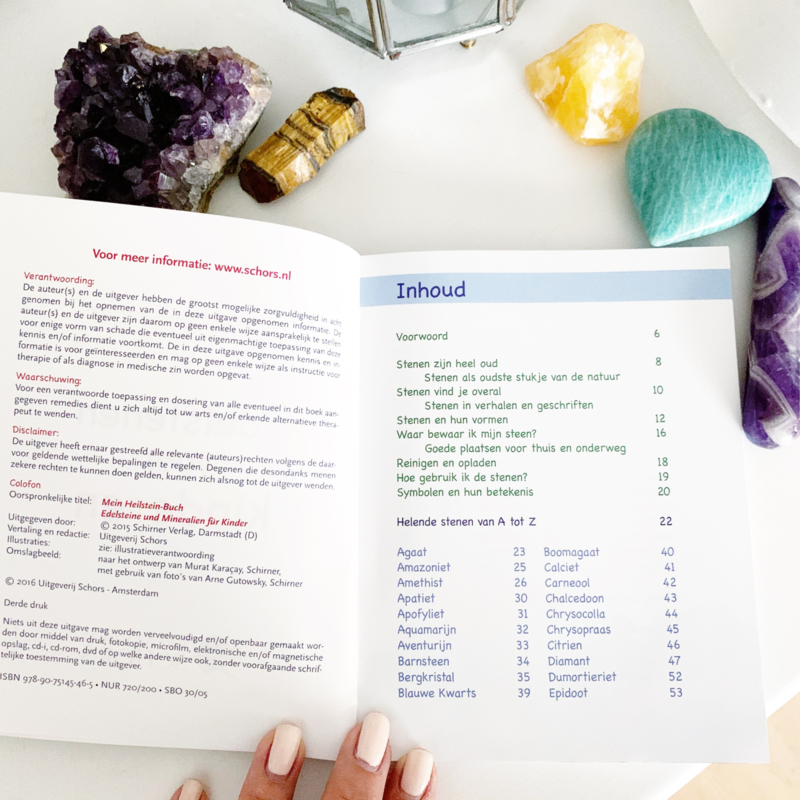 Voor meer informatie: www.schors.nl
Verantwoording:
De auteur(s) en de uitgever hebben de grootst mogelijke zorgvuldigheid in acht
genomen bij het opnemen van de in deze uitgave opgenomen informatie. De
auteur(s) en de uitgever zijn daarom op geen enkele wijze aansprakelijk te stellen
voor enige vorm van schade die eventueel uit eigenmachtige toepassing van deze
kennis en/of informatie voortkomt. De in deze uitgave opgenomen kennis en in-
formatie is voor geïnteresseerden en mag op geen enkele wijze als instructie voor
therapie of als diagnose in medische zin worden opgevat.
Waarschuwing:
Voor een verantwoorde toepassing en dosering van alle eventueel in dit boek aan-
gegeven remedies dient u zich altijd tot uw arts en/of erkende alternatieve thera-
peut te wenden.
Disclaimer:
De uitgever heeft ernaar gestreefd alle relevante (auteurs)rechten volgens de daar-
voor geldende wettelijke bepalingen te regelen. Degenen die desondanks menen
zekere rechten te kunnen doen gelden, kunnen zich alsnog tot de uitgever wenden.
Colofon
Oorspronkelijke titel: Mein Heilstein-Buch
Edelsteine und Mineralien für Kinder
© 2015 Schirner Verlag, Darmstadt (D)
Uitgegeven door: Uitgeverij Schors
Vertaling en redactie: zie: illustratieverantwoording
Illustraties: naar het ontwerp van Murat Karaçay, Schirner,
Omslagbeeld: met gebruik van foto's van Arne Gutowsky, Schirner
© 2016 Uitgeverij Schors - Amsterdam
Derde druk
Niets uit deze uitgave mag worden verveelvoudigd en/of openbaar gemaakt wor-
den door middel van druk, fotokopie, microfilm, elektronische en/of magnetische
opslag, cd-i, cd-rom, dvd of op welke andere wijze ook, zonder voorafgaande schrif-
telijke toestemming van de uitgever.
ISBN 978-90-75145-46-5 • NUR 720/200 • SBO 30/05
Inhoud
Voorwoord 6
Stenen zijn heel oud 8
Stenen als oudste stukje van de natuur
Stenen vind je overal 10
Stenen in verhalen en geschriften
Stenen en hun vormen 12
Waar bewaar ik mijn steen? 16
Goede plaatsen voor thuis en onderweg
Reinigen en opladen 18
Hoe gebruik ik de stenen? 19
Symbolen en hun betekenis 20
Helende stenen van A tot Z 22
Agaat 23 Boomagaat 40
Amazoniet 25 Calciet 41
Amethist 26 Carneool 42
Apatiet 30 Chalcedoon 43
Apofyliet 31 Chrysocolla 44
Aquamarijn 32 Chrysopraas 45
Aventurijn 33 Citrien 46
Barnsteen 34 Diamant 47
Bergkristal 35 Dumortieriet 52
Blauwe Kwarts 39 Epidoot 53